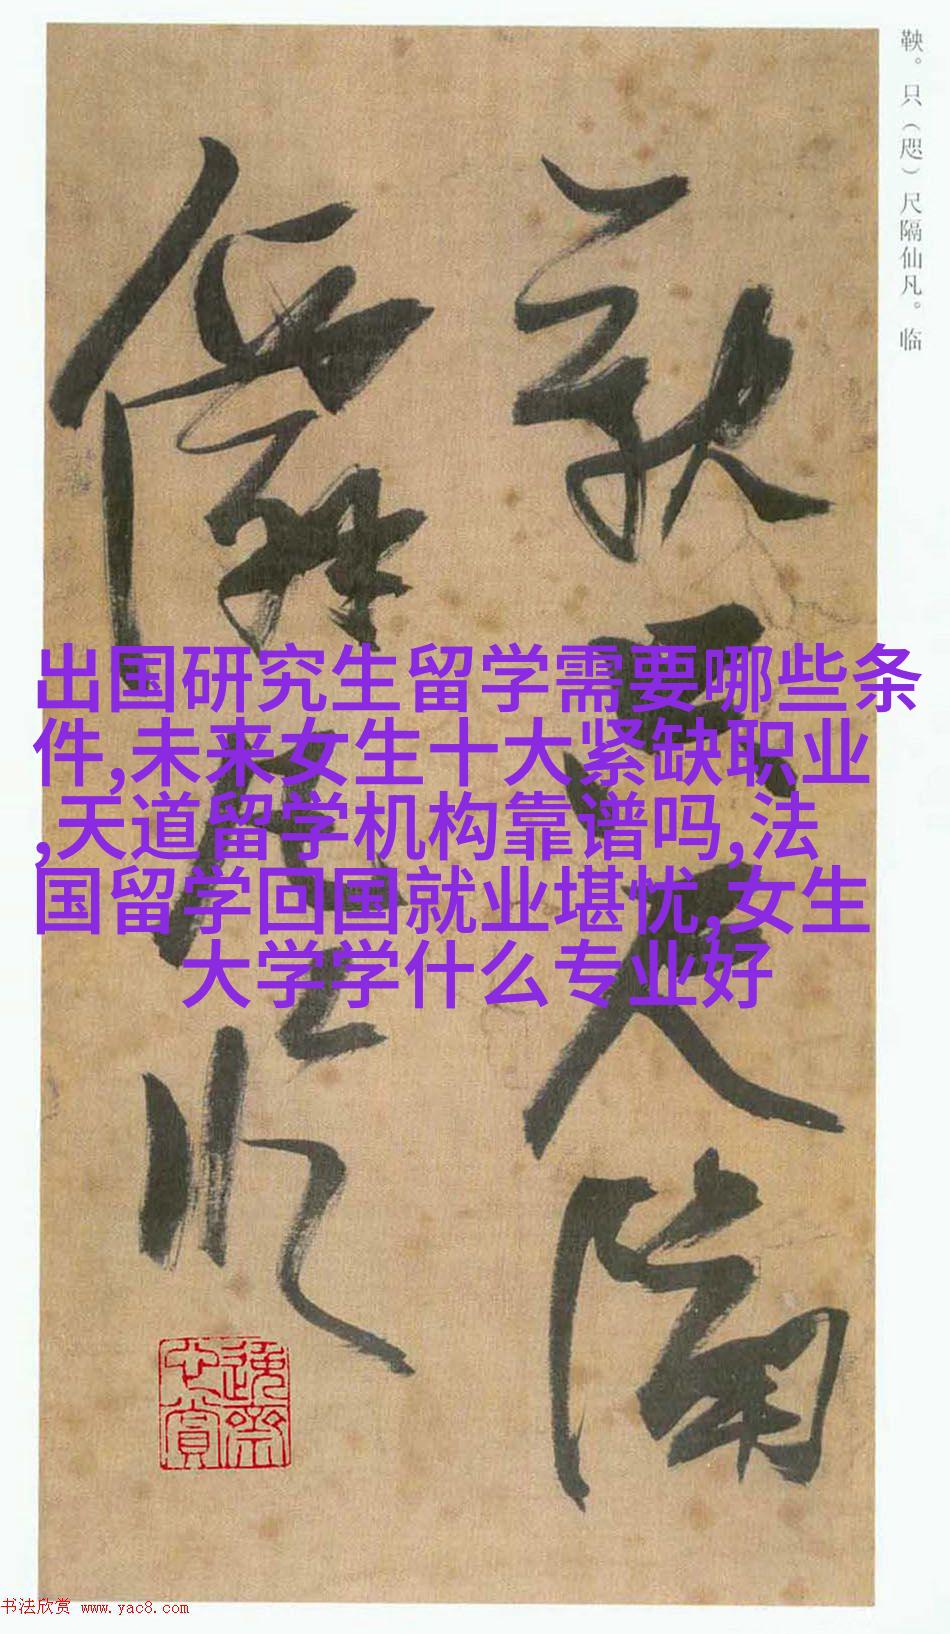 鞅。只（咫）尺隔仙凡。临
鞅只尺隔
仙凡临
出国研究生留学需要哪些条
件,未来女生十大紧缺职业
,天道留学机构靠谱吗,法
国留学回国就业堪忧,女生
大学学什么专业好
书法欣赏 www.yac8.com